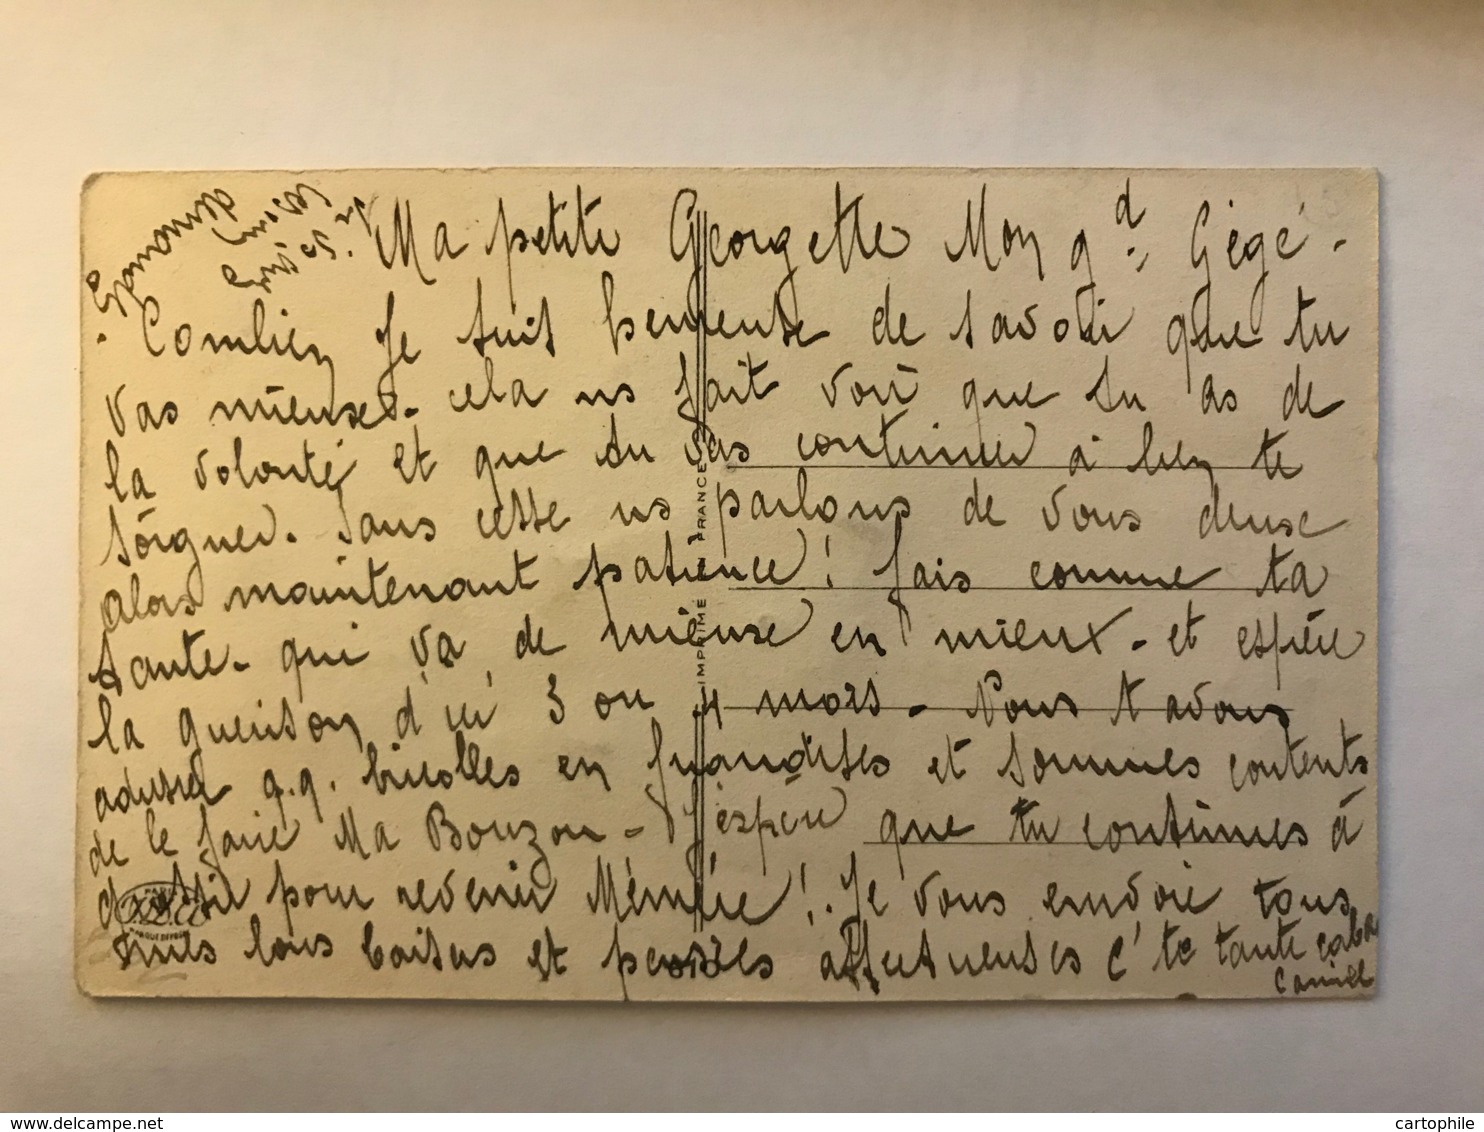 Ma petite Georgette Mon gd Gégé -
Combien Je suis heureuse de savoir que tu
vas mieuxe. cela ns fait voir que tu as de
la volonté et que tu vas continuer à bien te
soigner. Sans cesse ns parlons de vous deuxe
alors maintenant patience! fais comme ta
tante - qui va de mieuxe en mieux - et espère
la guerison d'ici 3 ou 4 mois - Nous t'avons
adressé q.q. bricolles en friandises et sommes contents
de le faire Ma Bouzou - J'espère que tu continues à
grossir pour revenir Mémère! Je vous envoie tous
mes bons baisers et pensées affectueuses C' te tante
IMPRIME EN FRANCE
cartophile